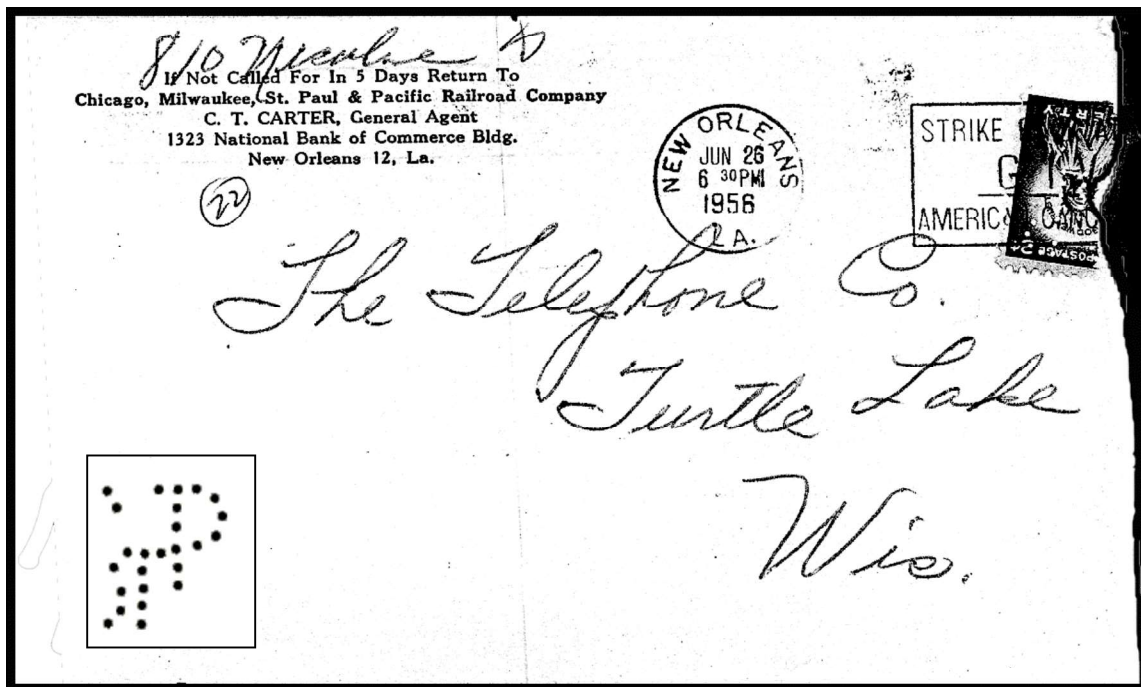 810 Nicolne St
If Not Called For In 5 Days Return To
Chicago, Milwaukee, St. Paul & Pacific Railroad Company
C. T. CARTER, General Agent
1323 National Bank of Commerce Bldg.
New Orleans 12, La.
22
NEW ORLEANS
JUN 26
6 30 PM
1956
LA.
STRIKE
AMERIC
CANC
POSTAGE 2¢
The Telephone Co.
Turtle Lake
Wis.